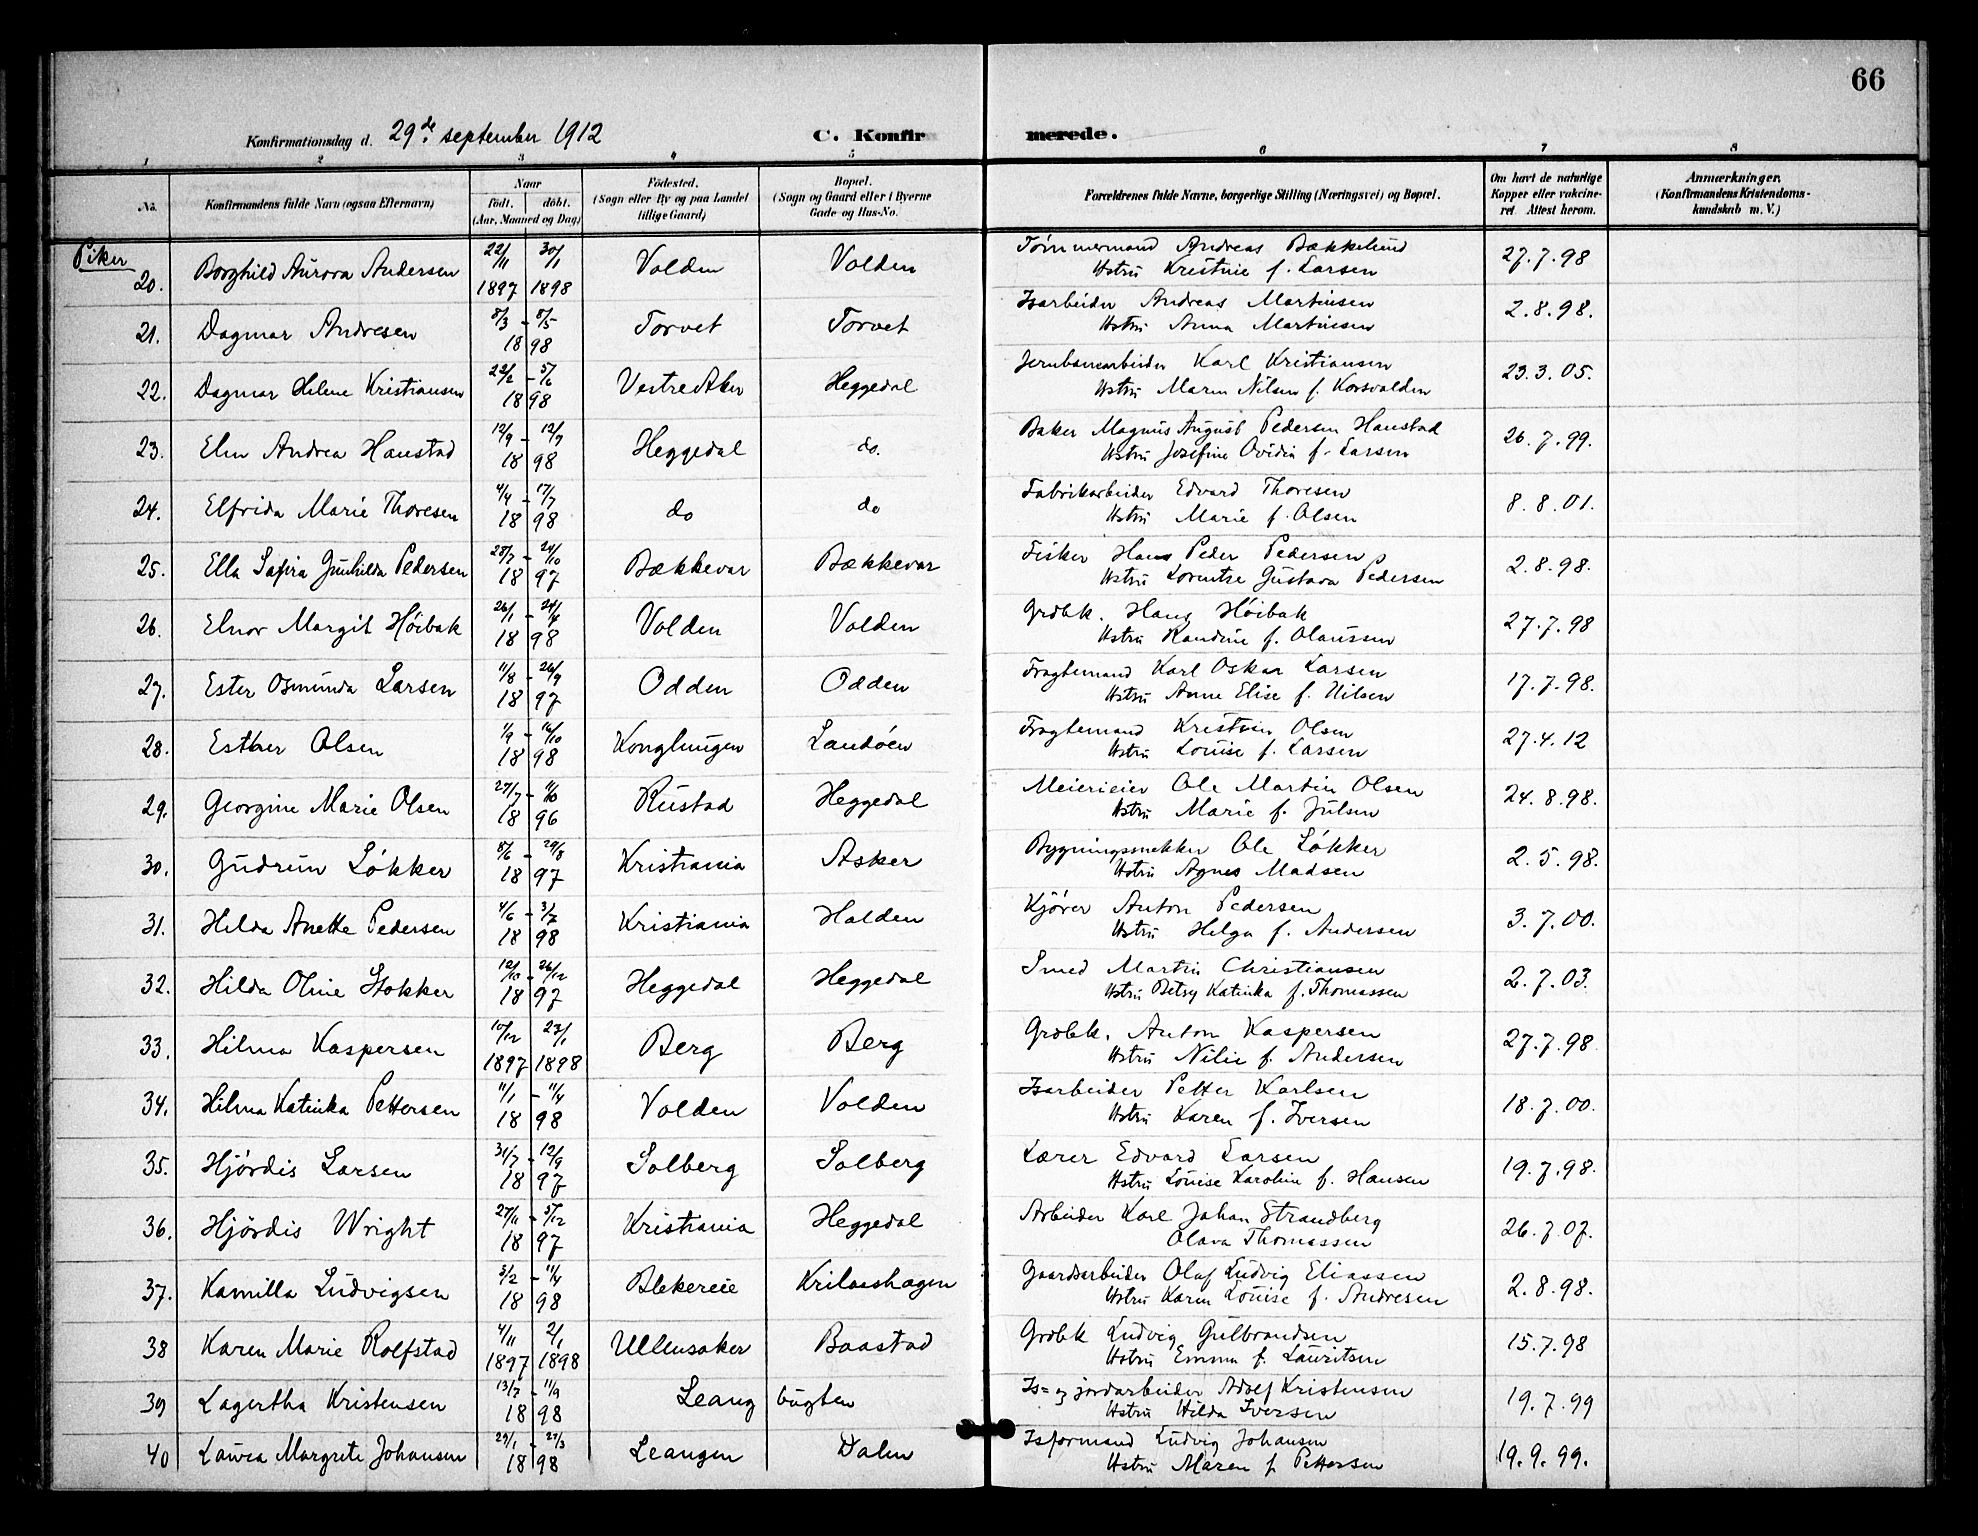 66
Konfirmationsdag d. 29de september 1912 C. Konfirmerede.
1 2 3 4 5 6 7 8
No. Konfirmandens fulde Navn (ogsaa Efternavn) Naar født. døbt. (Aar, Maaned og Dag) Fødested. (Sogn eller By og paa Landet tillige Gaard) Bopæl. (Sogn og Gaard eller i Byerne Gade og Hus-No. Forældrenes fulde Navne, borgerlige Stilling (Næringsvei) og Bopæl. Om havt de naturlige Kopper eller vakcineret Attest herom. Anmærkninger. (Konfirmandens Kristendomskundskab m. V.)
Piker
20. Borghild Aurora Andersen 22/11 1897 30/1 1898 Volden Volden Tømmermand Andreas Bækkelund 27.7.98
Hstru Kristine f. Larsen
21. Dagmar Andresen 8/3 - 8/5 1898 Torvet Torvet Isarbeider Andreas Martinsen 2.8.98.
Hstru Anna Martinsen
22. Dagmar Helene Kristiansen 22/2 - 5/6 1898 Vestre Aker Heggedal Jernbanearbeider Karl Kristiansen 23.3.05.
Hstru Maren Nilsen f. Korsvolden
23. Elen Andrea Hanstad 12/9 - 12/7 1898 Heggedal do. Baker Magnus August Pedersen Hanstad 26.7.99.
Hstru Josefine Ovidia f. Larsen
24. Elfrida Marie Thoresen 4/4 - 17/7 1898 do do Fabrikarbeider Edvard Thoresen 8.8.01.
Hstru Marie f. Olsen
25. Ella Safira Gunhilda Pedersen 28/7 - 24/10 1897 Bækkevar Bækkevar Fisker Hans Peder Pedersen 2.8.98.
Hstru Lorentse Gustava Pedersen
26. Elnor Margit Høibak 26/1 - 24/4 1898 Volden Volden Grdbk. Hans Høibak 27.7.98
Hstru Randine f. Olaussen
27. Ester Osmunda Larsen 11/8 - 26/9 1897 Odden Odden Fragtemand Karl Oskar Larsen 17.7.98.
Hstru Anne Elise f. Nilsen
28. Esther Olsen 1/9 - 16/10 1898 Konglungen Landøen Fragtemand Kristian Olsen 27.4.12
Hstru Louise f. Larsen
29. Georgine Marie Olsen 27/7 - 11/10 1896 Rustad Heggedal Meierieier Ole Martin Olsen 24.8.98.
Hstru Marie f. Julsen
30. Gudrun Løkker 8/6 - 29/8 1897 Kristiania Asker Bygningssnekker Ole Løkker 2.5.98.
Hstru Agnes Madsen
31. Hilda Anette Pedersen 4/6 - 3/7 1898 Kristiania Halden Kjører Anton Pedersen 3.7.00.
Hstru Helga f. Andersen
32. Hilda Oline Stokker 12/10 - 26/12 1897 Heggedal Heggedal Smed Martin Christiansen 2.7.03.
Hstru Betsy Katinka f. Thomassen
33. Hilma Kaspersen 10/12 1897 23/1 1898 Berg Berg Grdbk. Anton Kaspersen 27.7.98
Hstru Nilie f. Andersen
34. Hilma Katinka Pettersen 11/1 - 11/4 1898 Volden Volden Isarbeider Petter Karlsen 18.7.00.
Hstru Karen f. Iversen
35. Hjørdis Larsen 31/7 - 12/9 1897 Solberg Solberg Lærer Edvard Larsen 19.7.98.
Hstru Louise Karoline f. Hansen
36. Hjørdis Wright 27/11 - 5/12 1897 Kristiania Heggedal Arbeider Karl Johan Strandberg 26.7.07.
Olava Thomassen
37. Kamilla Ludvigsen 5/2 - 11/4 1898 Blekereie Krilaashagen Gaardsarbeider Olaf Ludvig Eliassen 2.8.98.
Hstru Karen Louise f. Andresen
38 Karen Marie Rolfstad 4/11 1897 2/1 1898 Ullensaker Baastad Grdbk Ludvig Gulbrandsen 15.7.98
Hstru Emma f. Lauritsen
39 Lagertha Kristensen 13/7 - 11/9 1898 Leangbugten Is= og jordarbeider Adolf Kristensen 19.7.99
Hstru Hilda Iversen
40 Laura Margrete Johansen 29/1 - 27/3 1898 Leangen Dalen Isformand Ludvig Johansen 19.9.99.
Hstru Maren f. Pettersen